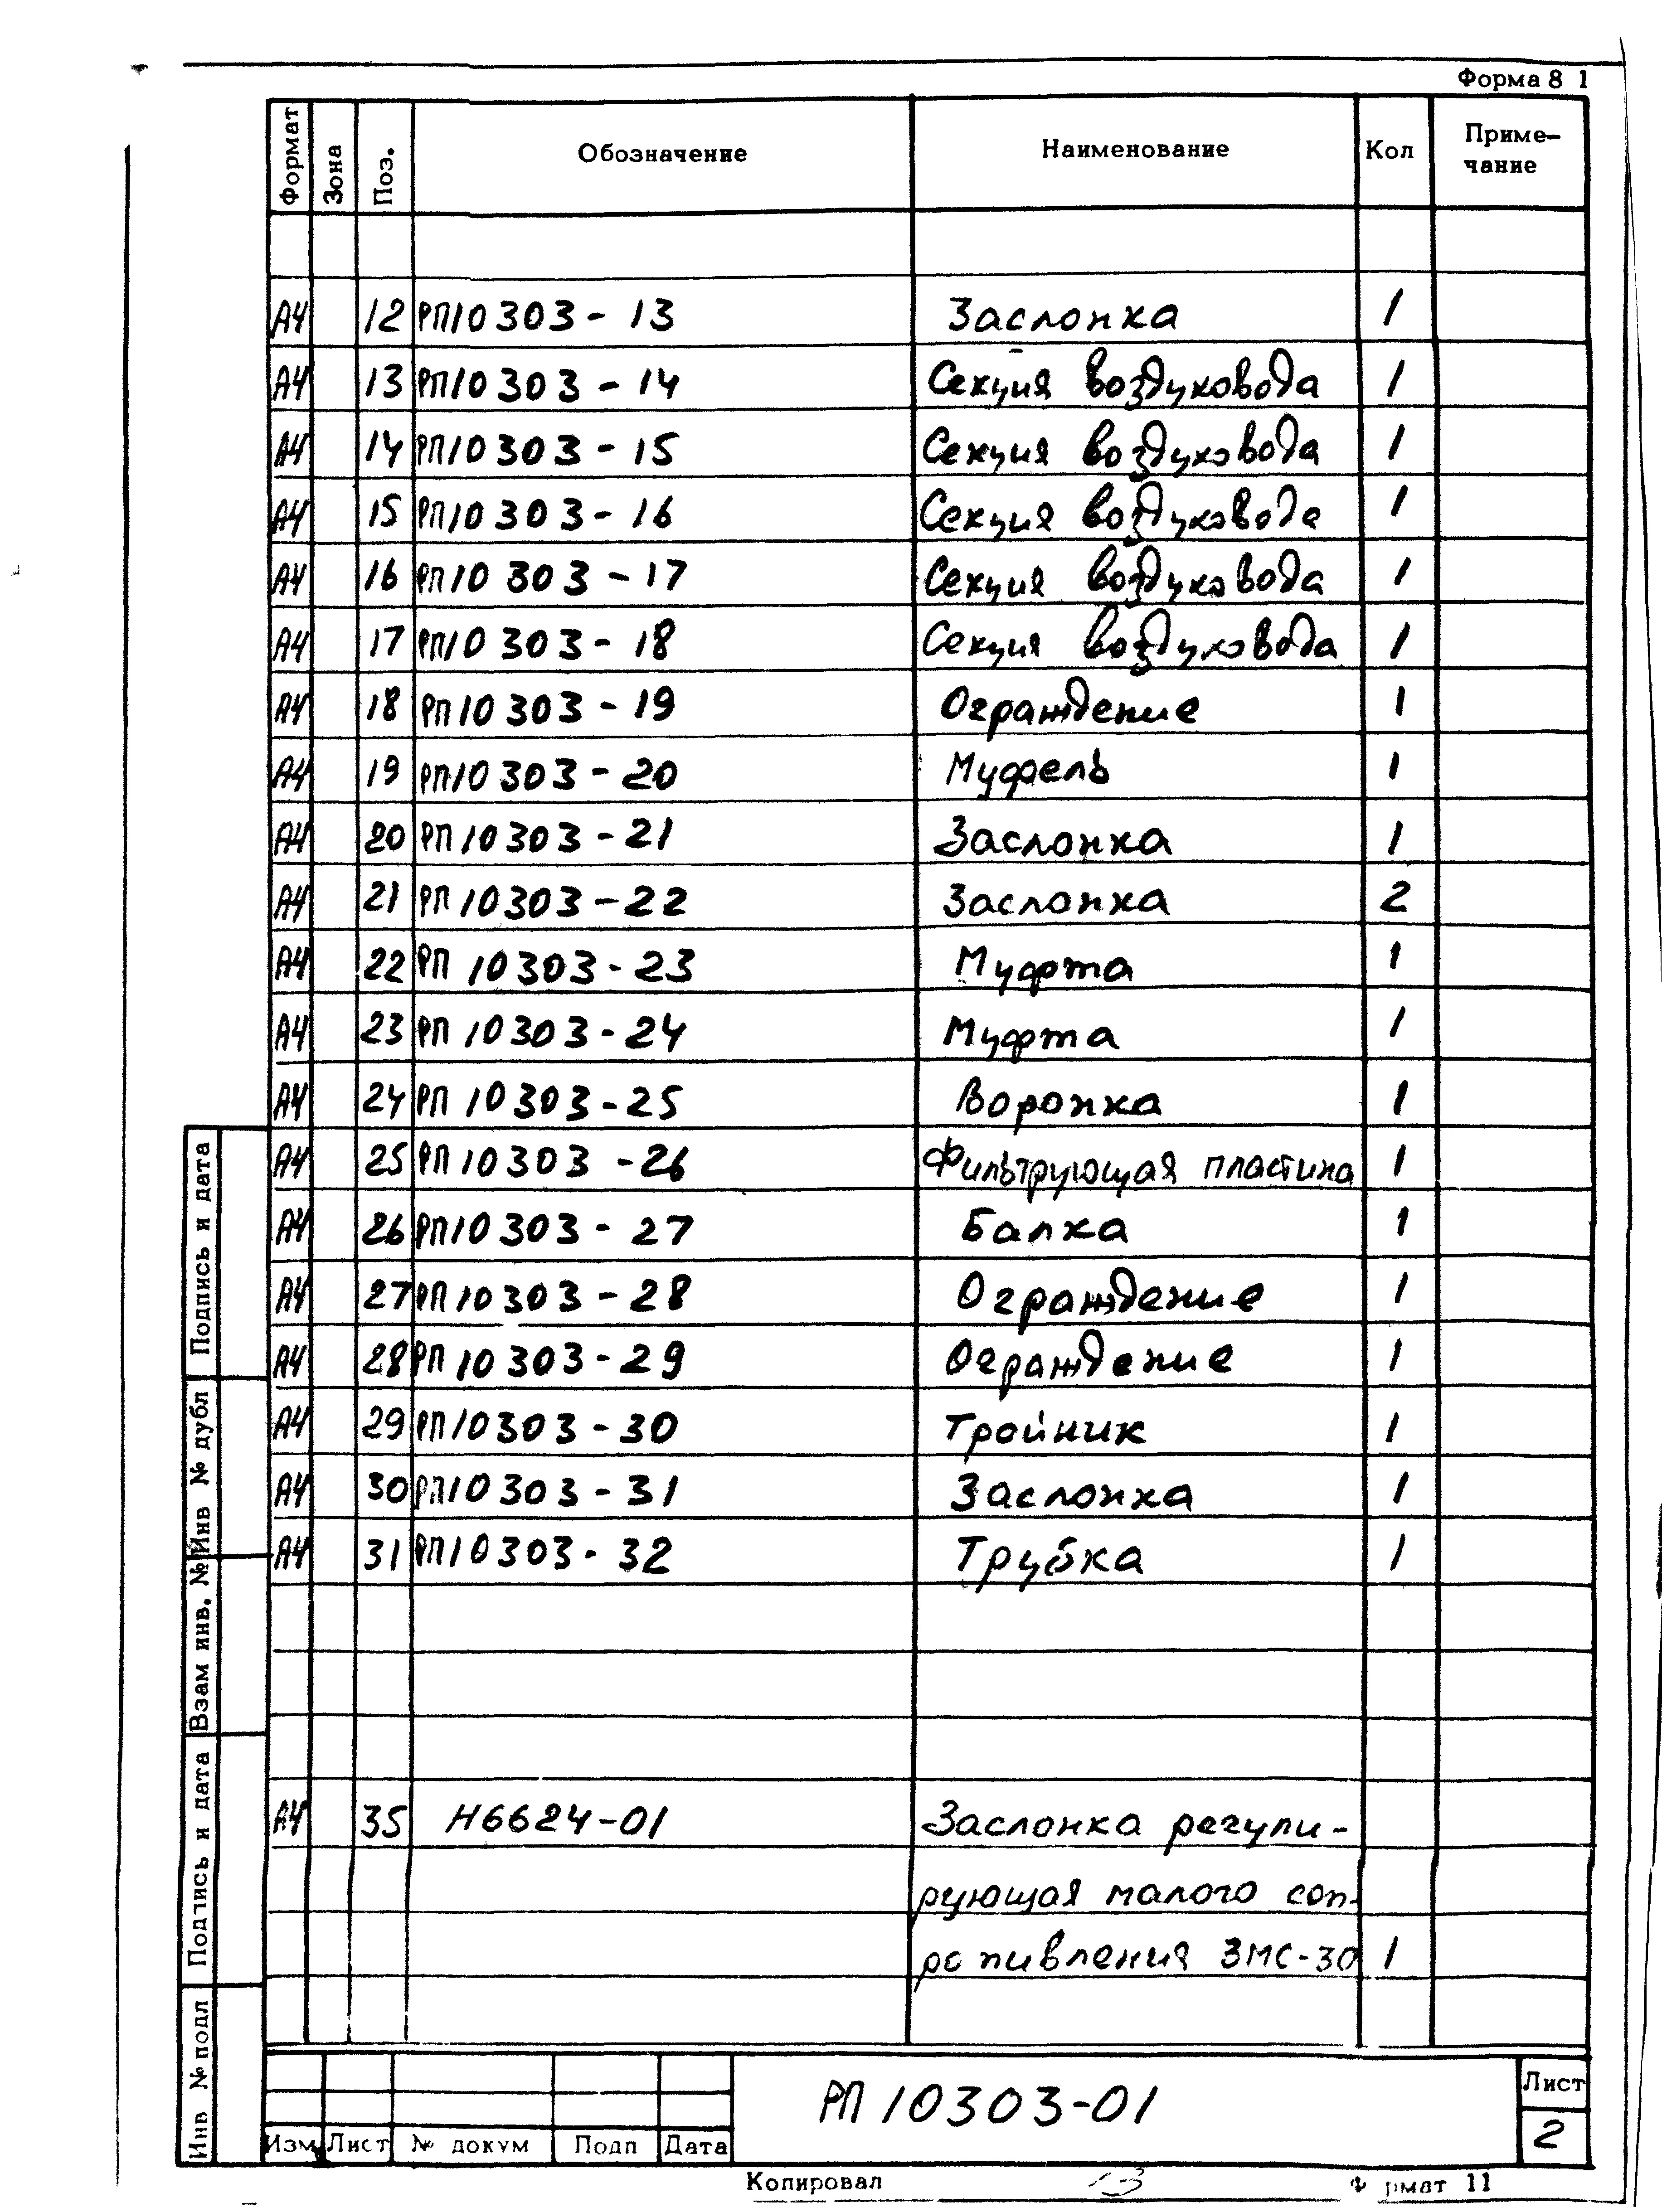 Форма 8 1
Формат Зона Поз. Обозначение Наименование Кол Приме-
чание
А4 12 РП10303-13 Заслонка 1
А4 13 РП10303-14 Секция воздуховода 1
А4 14 РП10303-15 Секция воздуховода 1
А4 15 РП10303-16 Секция воздуховода 1
А4 16 РП10303-17 Секция воздуховода 1
А4 17 РП10303-18 Секция воздуховода 1
А4 18 РП10303-19 Ограждение 1
А4 19 РП10303-20 Муфель 1
А4 20 РП10303-21 Заслонка 1
А4 21 РП10303-22 Заслонка 2
А4 22 РП10303-23 Муфта 1
А4 23 РП10303-24 Муфта 1
А4 24 РП10303-25 Воронка 1
А4 25 РП10303-26 Фильтрующая пластина 1
А4 26 РП10303-27 Балка 1
А4 27 РП10303-28 Ограждение 1
А4 28 РП10303-29 Ограждение 1
А4 29 РП10303-30 Тройник 1
А4 30 РП10303-31 Заслонка 1
А4 31 РП10303-32 Трубка 1
А4 35 Н6624-01 Заслонка регули-
рующая малого соп-
ротивления ЗМС-30 1
Инв № подл Подпись и дата Взам инв. № Инв № дубл Подпись и дата
РП 10303-01
Лист
2
Изм Лист № докум Подп Дата
Копировал
рмат 11